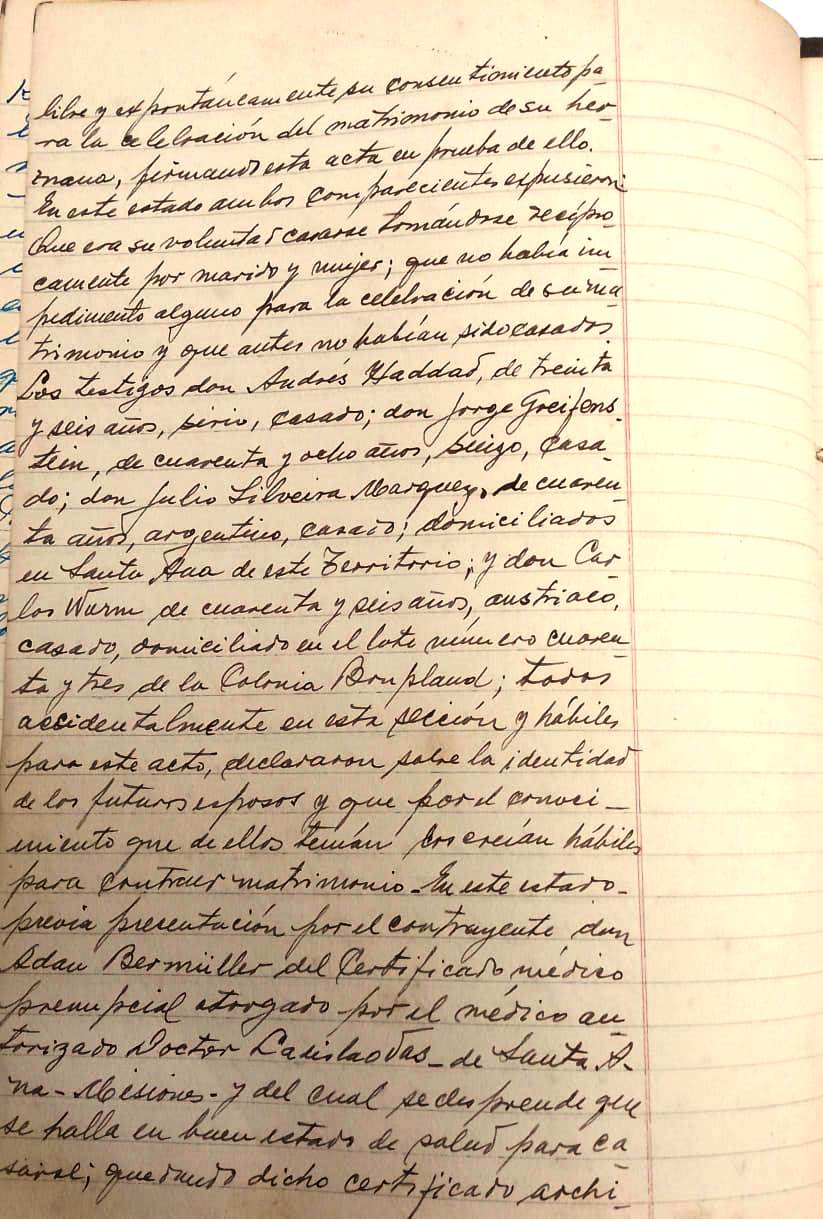 libre y expontáneamente su consentimiento pa
ra la celebración del matrimonio de su her-
mana, firmando esta acta en prueba de ello.
En este estado ambos comparecientes expusieron:
Que era su voluntad casarse tomándose recípro-
camente por marido y mujer; que no había im
pedimento alguno para la celebración de su ma
trimonio y que antes no habían sido casados.
Los testigos don Andrés Haddad, de treinta
y seis años, sirio, casado; don Jorge Greifens-
tein, de cuarenta y ocho años, suizo, casa
do; don Julio Silveira Marquez, de cuaren-
ta años, argentino, casado; domiciliados
en Santa Ana de este Territorio; y don Car
los Wurm de cuarenta y seis años, austriaco,
casado, domiciliado en el lote número cuaren
ta y tres de la Colonia Bonpland; todos
accidentalmente en esta sección y hábiles
para este acto, declararon sobre la identidad
de los futuros esposos y que por el conoci-
miento que de ellos tenían los creían hábiles
para contraer matrimonio - En este estado -
previa presentación por el contrayente don
Adan Bermüller del Certificado médico
prenupcial otorgado por el médico au
torizado Doctor Ladislao - de Santa A-
na - Misiones - y del cual se desprende que
se halla en buen estado de salud para ca
sarse; quedando dicho certificado archi-